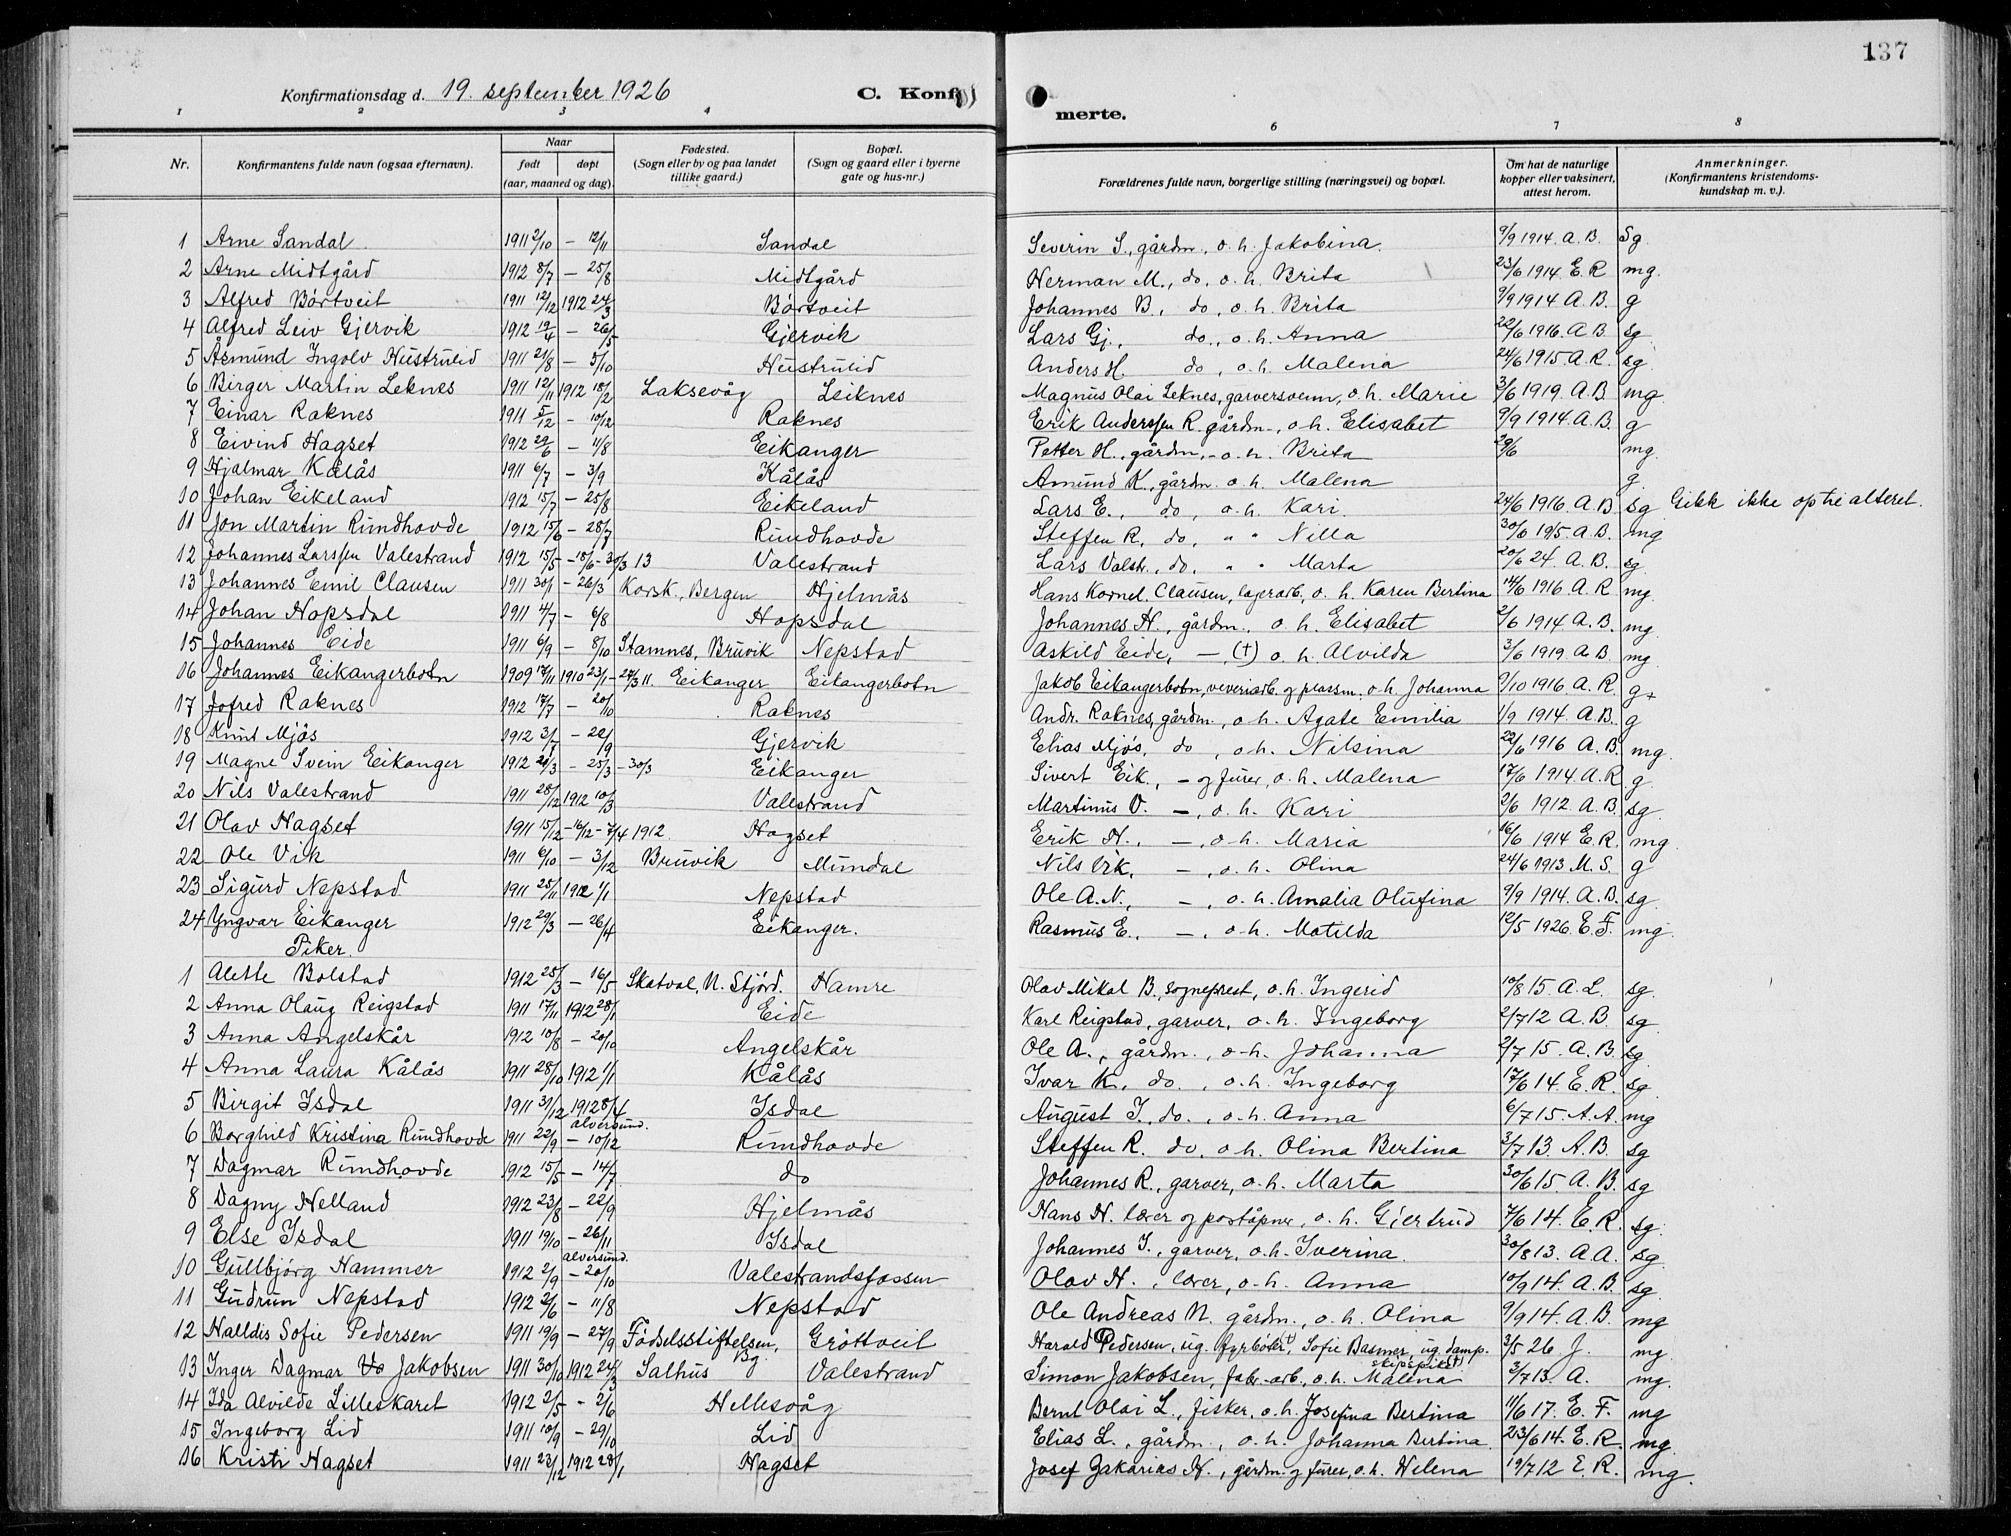 137
Konfirmationsdag d. 19. september 1926 C. Konfi
merte.
1 2 3 4 6 7 8
Nr. Konfirmantens fulde navn (ogsaa efternavn). Naar født døpt (aar, maaned og dag). Fødested. (Sogn eller by og paa landet tillike gaard.) Bopæl. (Sogn og gaard eller i byerne gate og hus-nr.) Forældrenes fulde navn, borgerlige stilling (næringsvei) og bopæl. Om hat de naturlige kopper eller vaksinert, attest herom. Anmerkninger. (Konfirmantens kristendoms-kundskap m. v.).
1 Arne Sandal 1911 2/10 – 12/11 Sandal Severin S., gårdm., o. h. Jakobina. 9/9 1914. A. B. Sg
2 Arne Midtgård 1912 8/7 – 25/8 Midtgård Herman M., do, o. h. Brita 23/6 1914 E. R mg.
3 Alfred Börtveit 1911 12/12 1912 24/3 Börtveit Johannes B., do, o. h. Brita 9/9 1914 A. B. g
4 Alfred Leiv Gjervik 1912 19/4 – 26/5 Gjervik Lars Gj., do., o. h. Anna 22/6 1916. A. B. sg
5 Åsmund Ingolv Hustrulid 1911 21/8 – 5/10 Hustrulid Anders H. do, o. h. Malena 24/6 1915. A. R. sg.
6 Birger Martin Leknes 1911 12/11 1912 18/2 Laksevåg Leiknes Magnus Olai Leknes, garversvenn, o. h. Marie 3/6 1919. A. B. mg.
7 Einar Raknes 1911 5/12 – 10/12 Raknes Erik Anderssen R. gårdm., o. h. Elisabet 9/9 1914. A. B. g
8 Eivind Hagset 1912 22/6 – 11/8 Eikanger Petter H., gårdm, – o. h. Brita 29/6 mg.
9 Hjalmar Kålås 1911 6/7 – 3/9 Kålås Amund K., gårdm. o. h. Malena g.
10 Johan Eikeland 1912 15/7 – 25/8 Eikeland Lars E., do, o. h. Kari. 24/6 1916. A. B sg Gikk ikke op til alteret.
11 Jon Martin Rundhovde 1912 15/6 – 28/7 Rundhovde Steffen R. do, " " Nilla 30/6 1915. A. B. mg
12 Johannes Larssen Valestrand 1912 15/5 – 15/6 – 30/3 13 Valestrand Lars Valstr., do, " " Marta 20/6 24. A. B. sg.
13 Johannes Emil Clausen 1911 30/1 – 26/3 Korsk., Bergen Hjelmås Hans Kornel. Clausen, lagerarb., o. h. Karen Bertina 14/6 1916. A. R mg.
14 Johan Hopsdal 1911 4/7 – 6/8 Hopsdal Johannes H., gårdm., o. h. Elisabet 2/6 1914 A. B. mg.
15 Johannes Eide 1911 6/9 – 8/10 Stamnes, Bruvik Nepstad Askild Eide, –, (†) o. h. Alvilda 3/6 1919. A. B. mg.
16 Johannes Eikangerbotn 1909 17/11 1910 23/1 – 27/3 11. Eikanger Eikangerbotn Jakob Eikangerbotn, veveriarb. og plassm. o. h. Johanna 9/10 1916. A. R. g+
17 Jofred Raknes 1912 17/7 – 20/10 Raknes Andr. Raknes, gårdm., o. h. Agate Emilia 1/9 1914. A. B. g
18 Knut Mjös 1912 3/7 – 22/9 Gjervik Elias Mjös, do, o. h. Nilsina 22/6 1916 A. B. mg.
19 Magne Svein Eikanger 1912 20/3 – 25/3 – 30/3 Eikanger Sivert Eik., – og furer, o. h. Malena 17/6 1914. A. R. g.
20 Nils Valestrand 1911 28/12 1912 10/3 Valestrand Martinus V. –, o. h. Kari 2/6 1912. A. B. sg.
21 Olav Hagset 1911 15/12 – 16/12 – 7/4 1912. Hagset Erik H., –, o. h. Maria 16/6 1914 E. R. mg.
22 Ole Vik 1911 6/10 – 3/12 Bruvik Mundal Nils Vik, –, o. h. Olina 24/6 1913 M. S. g
23 Sigurd Nepstad 1911 25/11 1912 1/1 Nepstad Ole A. N., –, o. h. Amalia Olufina 9/9 1914. A. B. sg.
24 Yngvar Eikanger 1912 29/3 – 26/4 Eikanger. Rasmus E., –, o. h. Matilda 12/5 1926. E. F. mg.
Piker.
1 Alette Bolstad 1912 25/3 – 16/5 Skatval, N. Stjörd. Hamre Olav Mikal B., sogneprest, o. h. Ingerid 10/8 15. A. L. sg.
2 Anna Olaug Reigstad 1911 17/11 1912 28/1 Eide Karl Reigstad, garver, o. h. Ingeborg 2/7 12 A. B. sg
3 Anna Angelskår 1912 10/8 – 20/10 Angelskår Ole A., gårdm., o. h. Johanna 2/7 15. A. B. sg
4 Anna Laura Kålås 1911 28/10 1912 1/1 Kålås Ivar K. do., o. h. Ingeborg 17/6 14. E. R. sg.
5 Birgit Isdal 1911 31/12 1912 8/4 Isdal August I. do., o. h. Anna 6/7 15. A. A. mg
6 Borghild Kristina Rundhovde 1911 22/9 – alversund. 10/12 Rundhovde Steffen R. do, o. h. Olina Bertina 3/7 13. A. B. sg
7 Dagmar Rundhovde 1912 15/5 – 14/7 do Johannes R., garver, o. h. Marta 30/6 15. A. B. sg
8 Dagny Helland 1912 23/8 – 22/9 Hjelmås Hans H. lærer og poståpner, o. h. Gjertrud 7/6 14. E. R. sg.
9 Else Isdal 1911 19/10 – 26/11 Isdal Johannes I., garver, o. h. Iverina. 30/8 13. A. A. sg
10 Gullbjörg Hammer 1912 2/9 – alversund. 20/10 Valestrandsfossen Olav H., lærer, o. h. Anna 10/9 14. A. B. sg.
11 Gudrun Nepstad 1912 2/6 – 11/8 Nepstad Ole Andreas N. gårdm., o. h. Olina 9/9 14. A. B. mg
12 Halldis Sofie Pedersen 1911 19/9 – 27/9 Födselsstiftelsen, Bg. Gröttveit Harald Pedersen, ug. fyrböter (†), Sofie Basmer, ug. damp-skipspike (†) 3/5 26. J. mg.
13 Inger Dagmar Jakobsen 1911 30/10 1912 24/3 Salhus Valestrand Simon Jakobsen, fabr.-arb., o. h. Malena 3/7 13. A. mg.
14 Ida Alvilde Lilleskaret 1912 2/5 – 2/6 Hellesvåg Bernt Olai L., fisker, o. h. Josefina Bertina 11/6 17. E. F. mg
15 Ingeborg Lid 1911 10/9 – 29/10 Lid Elias L., gårdm., o. h. Johanna Bertina. 23/6 14. E. R. mg.
16 Kristi Hagset 1911 23/12 1912 28/1 Hagset Josef Zakarias H., gårdm. og furer, o. h. Helena 19/7 12 E. R. mg.